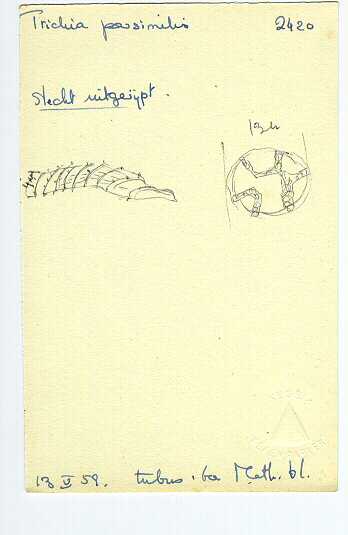 Trichia persimilis 2420
slecht uitgerijpt.
13 V 59. tubus: 60 Meth. bl.